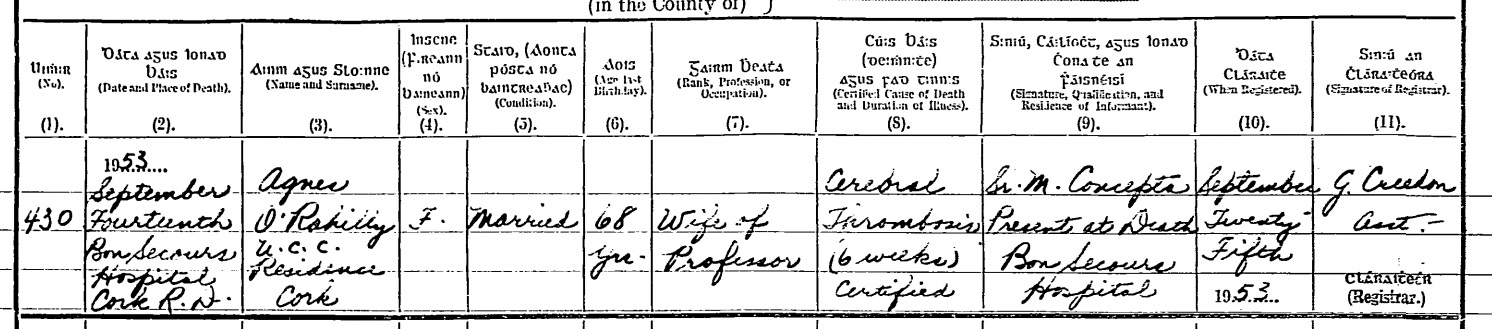 (in the County of) }
Uimhir
(No).
(1).
Dáta agus Ionad
Báis
(Date and Place of Death).
(2).
Ainm agus Sloinne
(Name and Surname).
(3).
Inscne
(Fireann
nó
baineann)
(Sex).
(4).
Staid, (Aonta
pósta nó
baintreabac)
(Condition).
(5).
Aois
(Age last
Birthday).
(6).
Gairm Beata
(Rank, Profession, or
Occupation).
(7).
Cúis Báis
(deimnite)
agus fad tinnis
(Certified Cause of Death
and Duration of Illness).
(8).
Siniú, Cáilíoct, agus Ionad
Cónaite an
Fáisnéisí
(Signature, Qualification, and
Residence of Informant).
(9).
Dáta
Cláraite
(When Registered).
(10).
Siniú an
Cláraiteóra
(Signature of Registrar).
(11).
430
1953
September
Fourteenth
Bon Secours
Hospital
Cork R.D.
Agnes
O'Rahilly
U.C.C.
Residence
Cork
F.
Married
68
yrs.
Wife of
Professor
Cerebral
Thrombosis
(6 weeks)
Certified
Sr. M. Concepta
Present at Death
Bon Secours
Hospital
September
Twenty
Fifth
1953
G. Creedon
Asst.-
Cláraiteóir
(Registrar.)